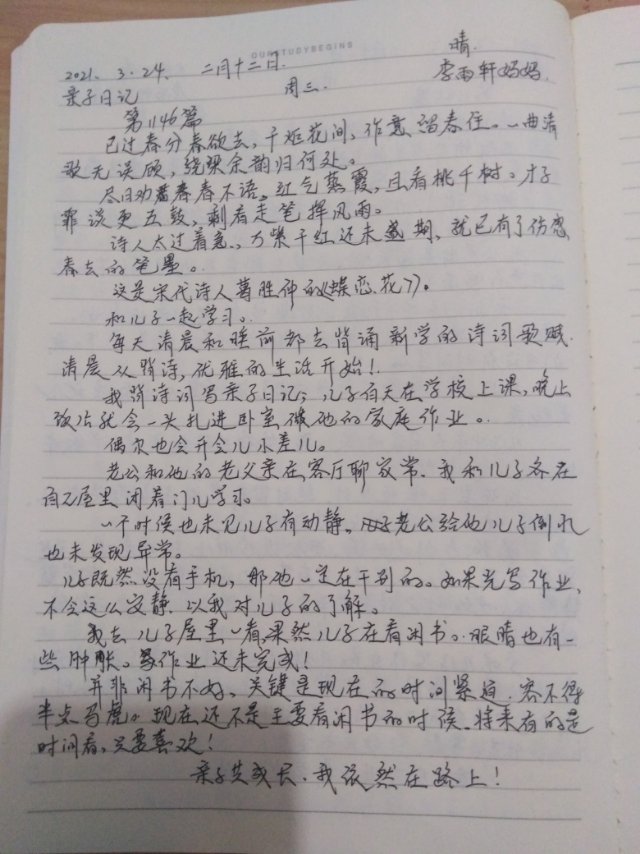 OURSTUDYBEGINS
2021. 3.24. 二月十二日. 晴.
亲子日记 周三. 李雨轩妈妈.
第1146篇
已过春分春欲去，千炬花间，作意留春住。一曲清
歌无误顾，绕梁余韵归何处。
尽日劝春春不语，红气蒸霞，且看桃千树。才子
霏谈更五鼓，剩看走笔挥风雨。
诗人太过着急，万紫千红还未盛期，就已有了伤感
春去的笔墨。
这是宋代诗人葛胜仲的《蝶恋花》。
和儿子一起学习。
每天清晨和睡前都去背诵新学的诗词歌赋.
清晨从背诗，优雅的生活开始！
我背诗词写亲子日记；儿子白天在学校上课，晚上
饭后就会一头扎进卧室做他的家庭作业。
偶尔也会开会儿小差儿。
老公和他的老父亲在客厅聊家常、我和儿子各在
自己屋里闭着门儿学习。
一个时候也未见儿子有动静，老公给他儿子倒水
也未发现异常。
儿子既然没有手机，那他一定在干别的。如果光写作业，
不会这么寂静.以我对儿子的了解。
我去儿子屋里一看，果然儿子在看闲书。眼睛也有一
些肿胀。作业还未完成！
并非闲书不好、关键是现在的时间紧迫.容不得
半点马虎。现在还不是主要看闲书的时候、将来有的是
时间看，只要喜欢！
亲子共成长.我依然在路上！